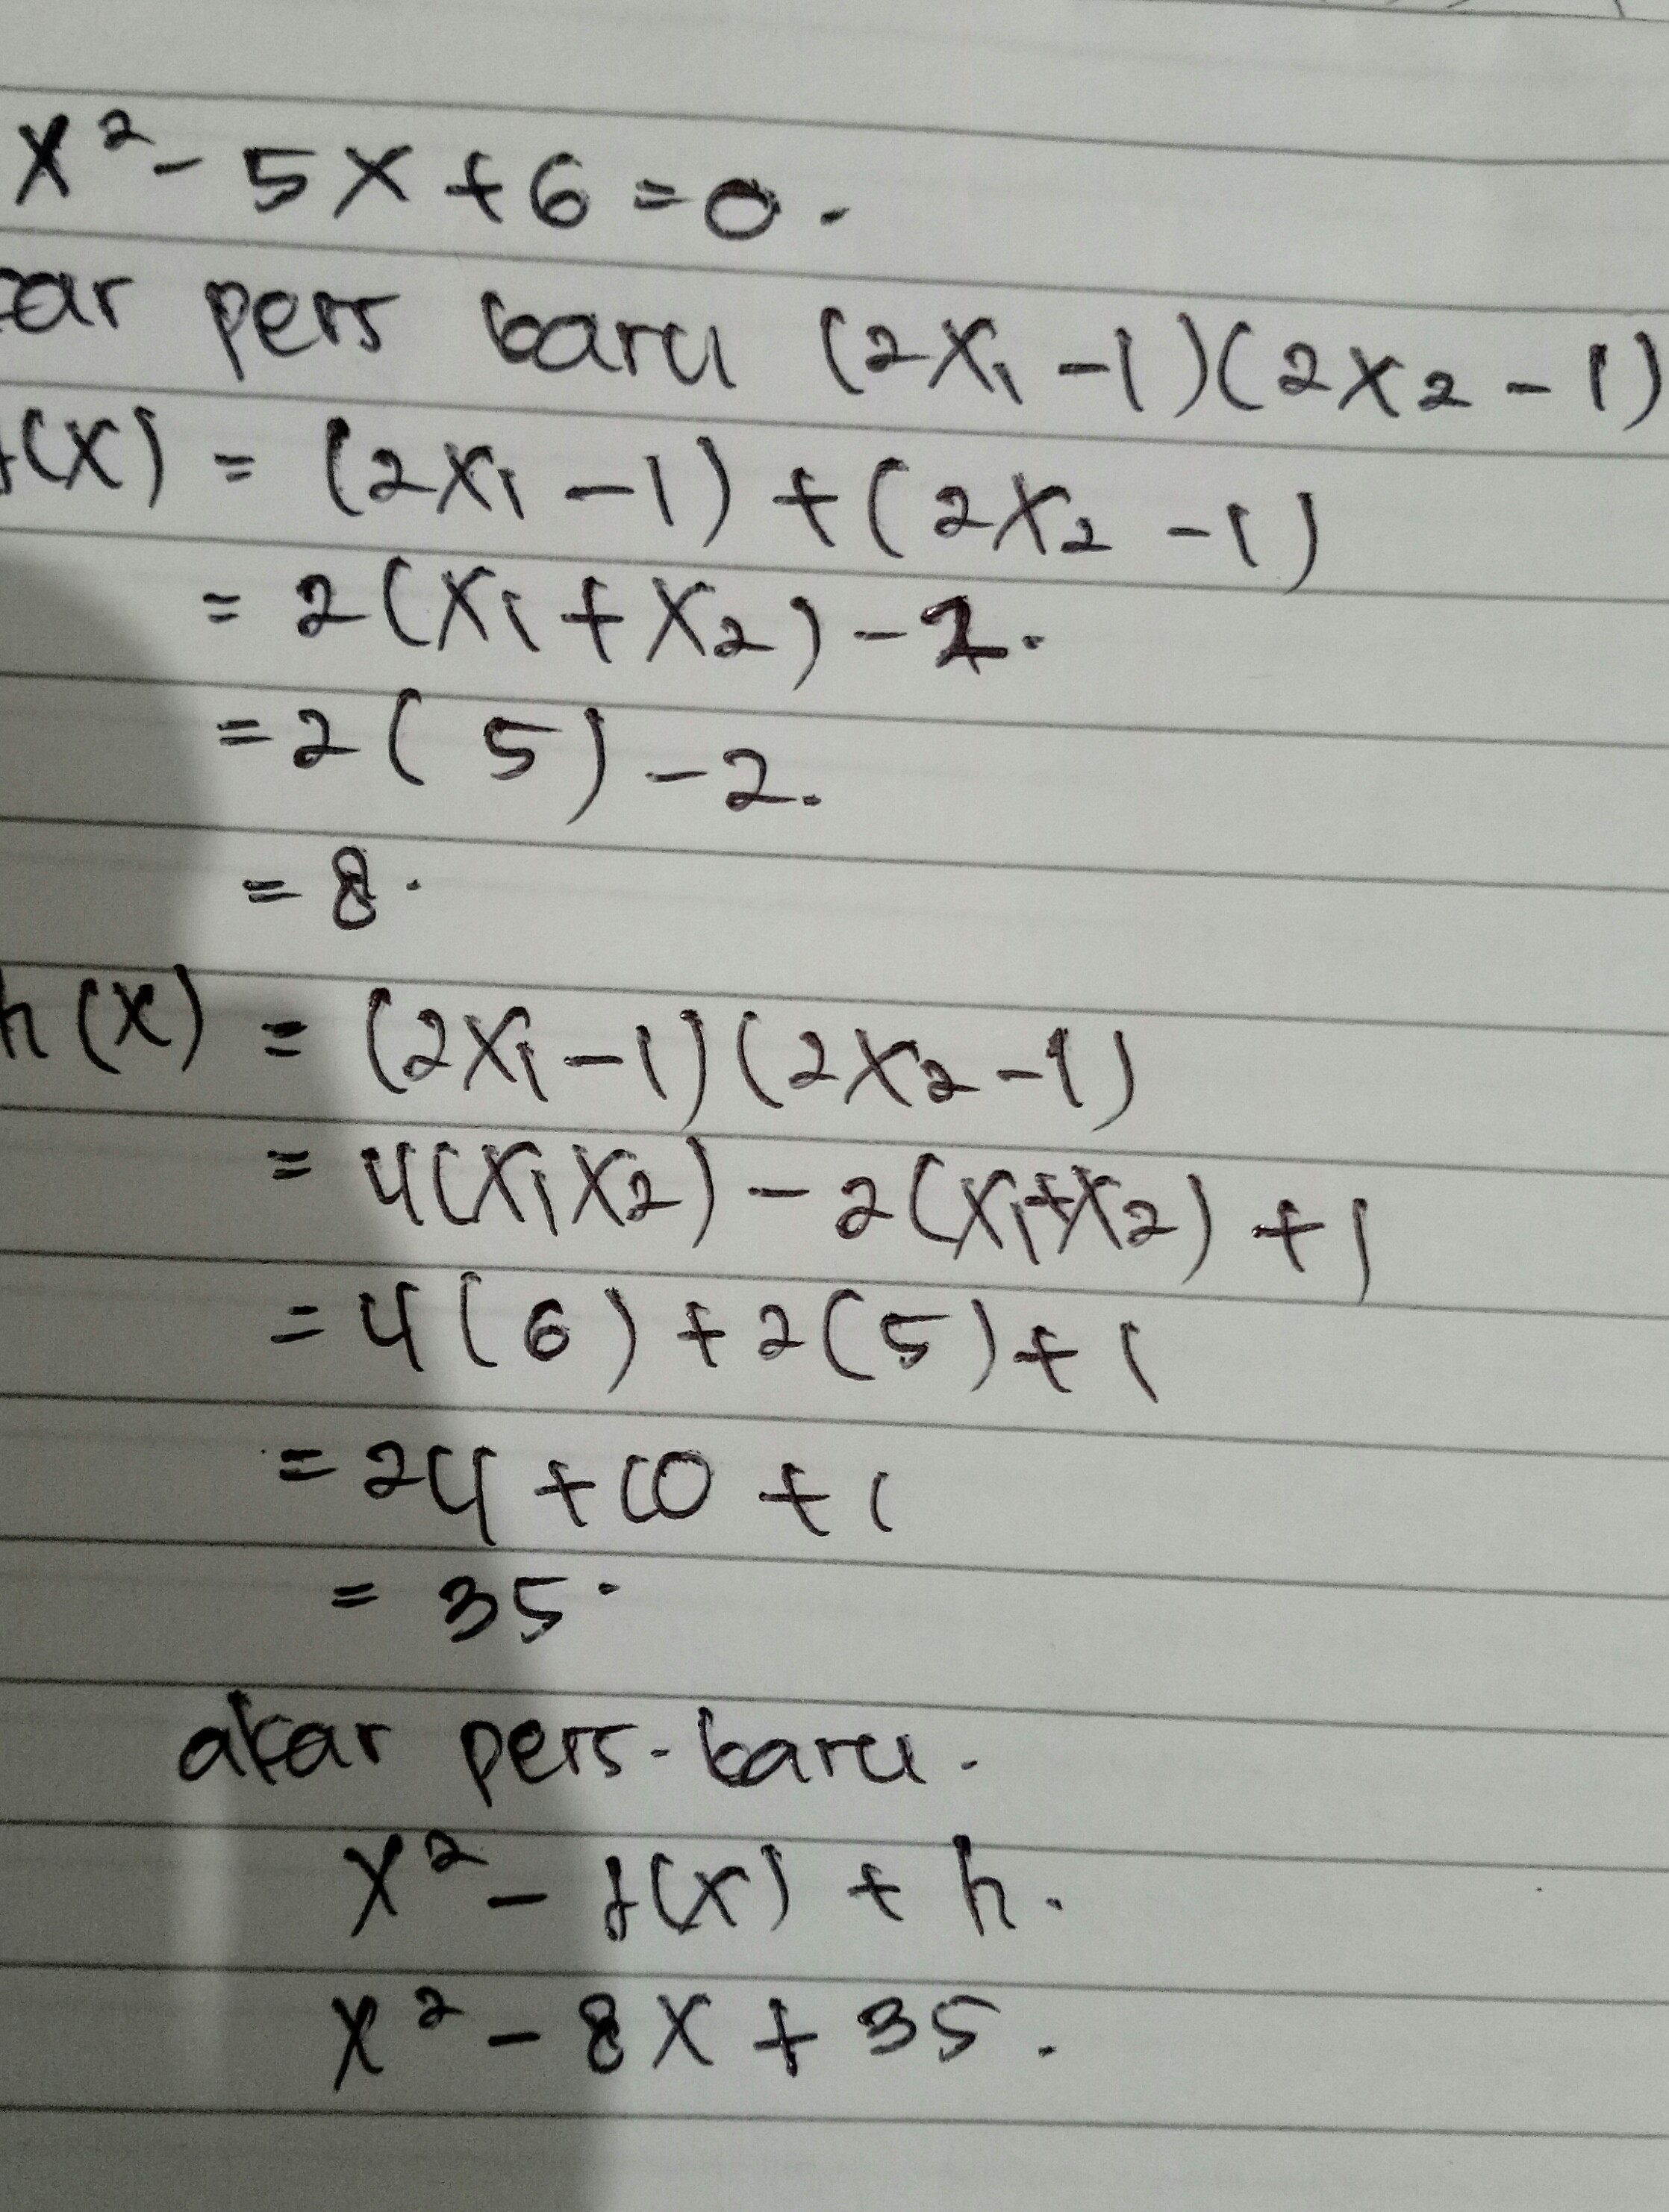 x² - 5x + 6 = 0.
ar pers baru (2x₁ - 1)(2x₂ - 1)
(x) = (2x₁ - 1) + (2x₂ - 1)
= 2(x₁ + x₂) - 2.
= 2( 5) - 2.
= 8.
h(x) = (2x₁ - 1)(2x₂ - 1)
= 4(x₁x₂) - 2(x₁+x₂) + 1
= 4(6) + 2(5) + 1
= 24 + 10 + 1
= 35.
akar pers-baru.
x² - f(x) + h.
x² - 8x + 35.